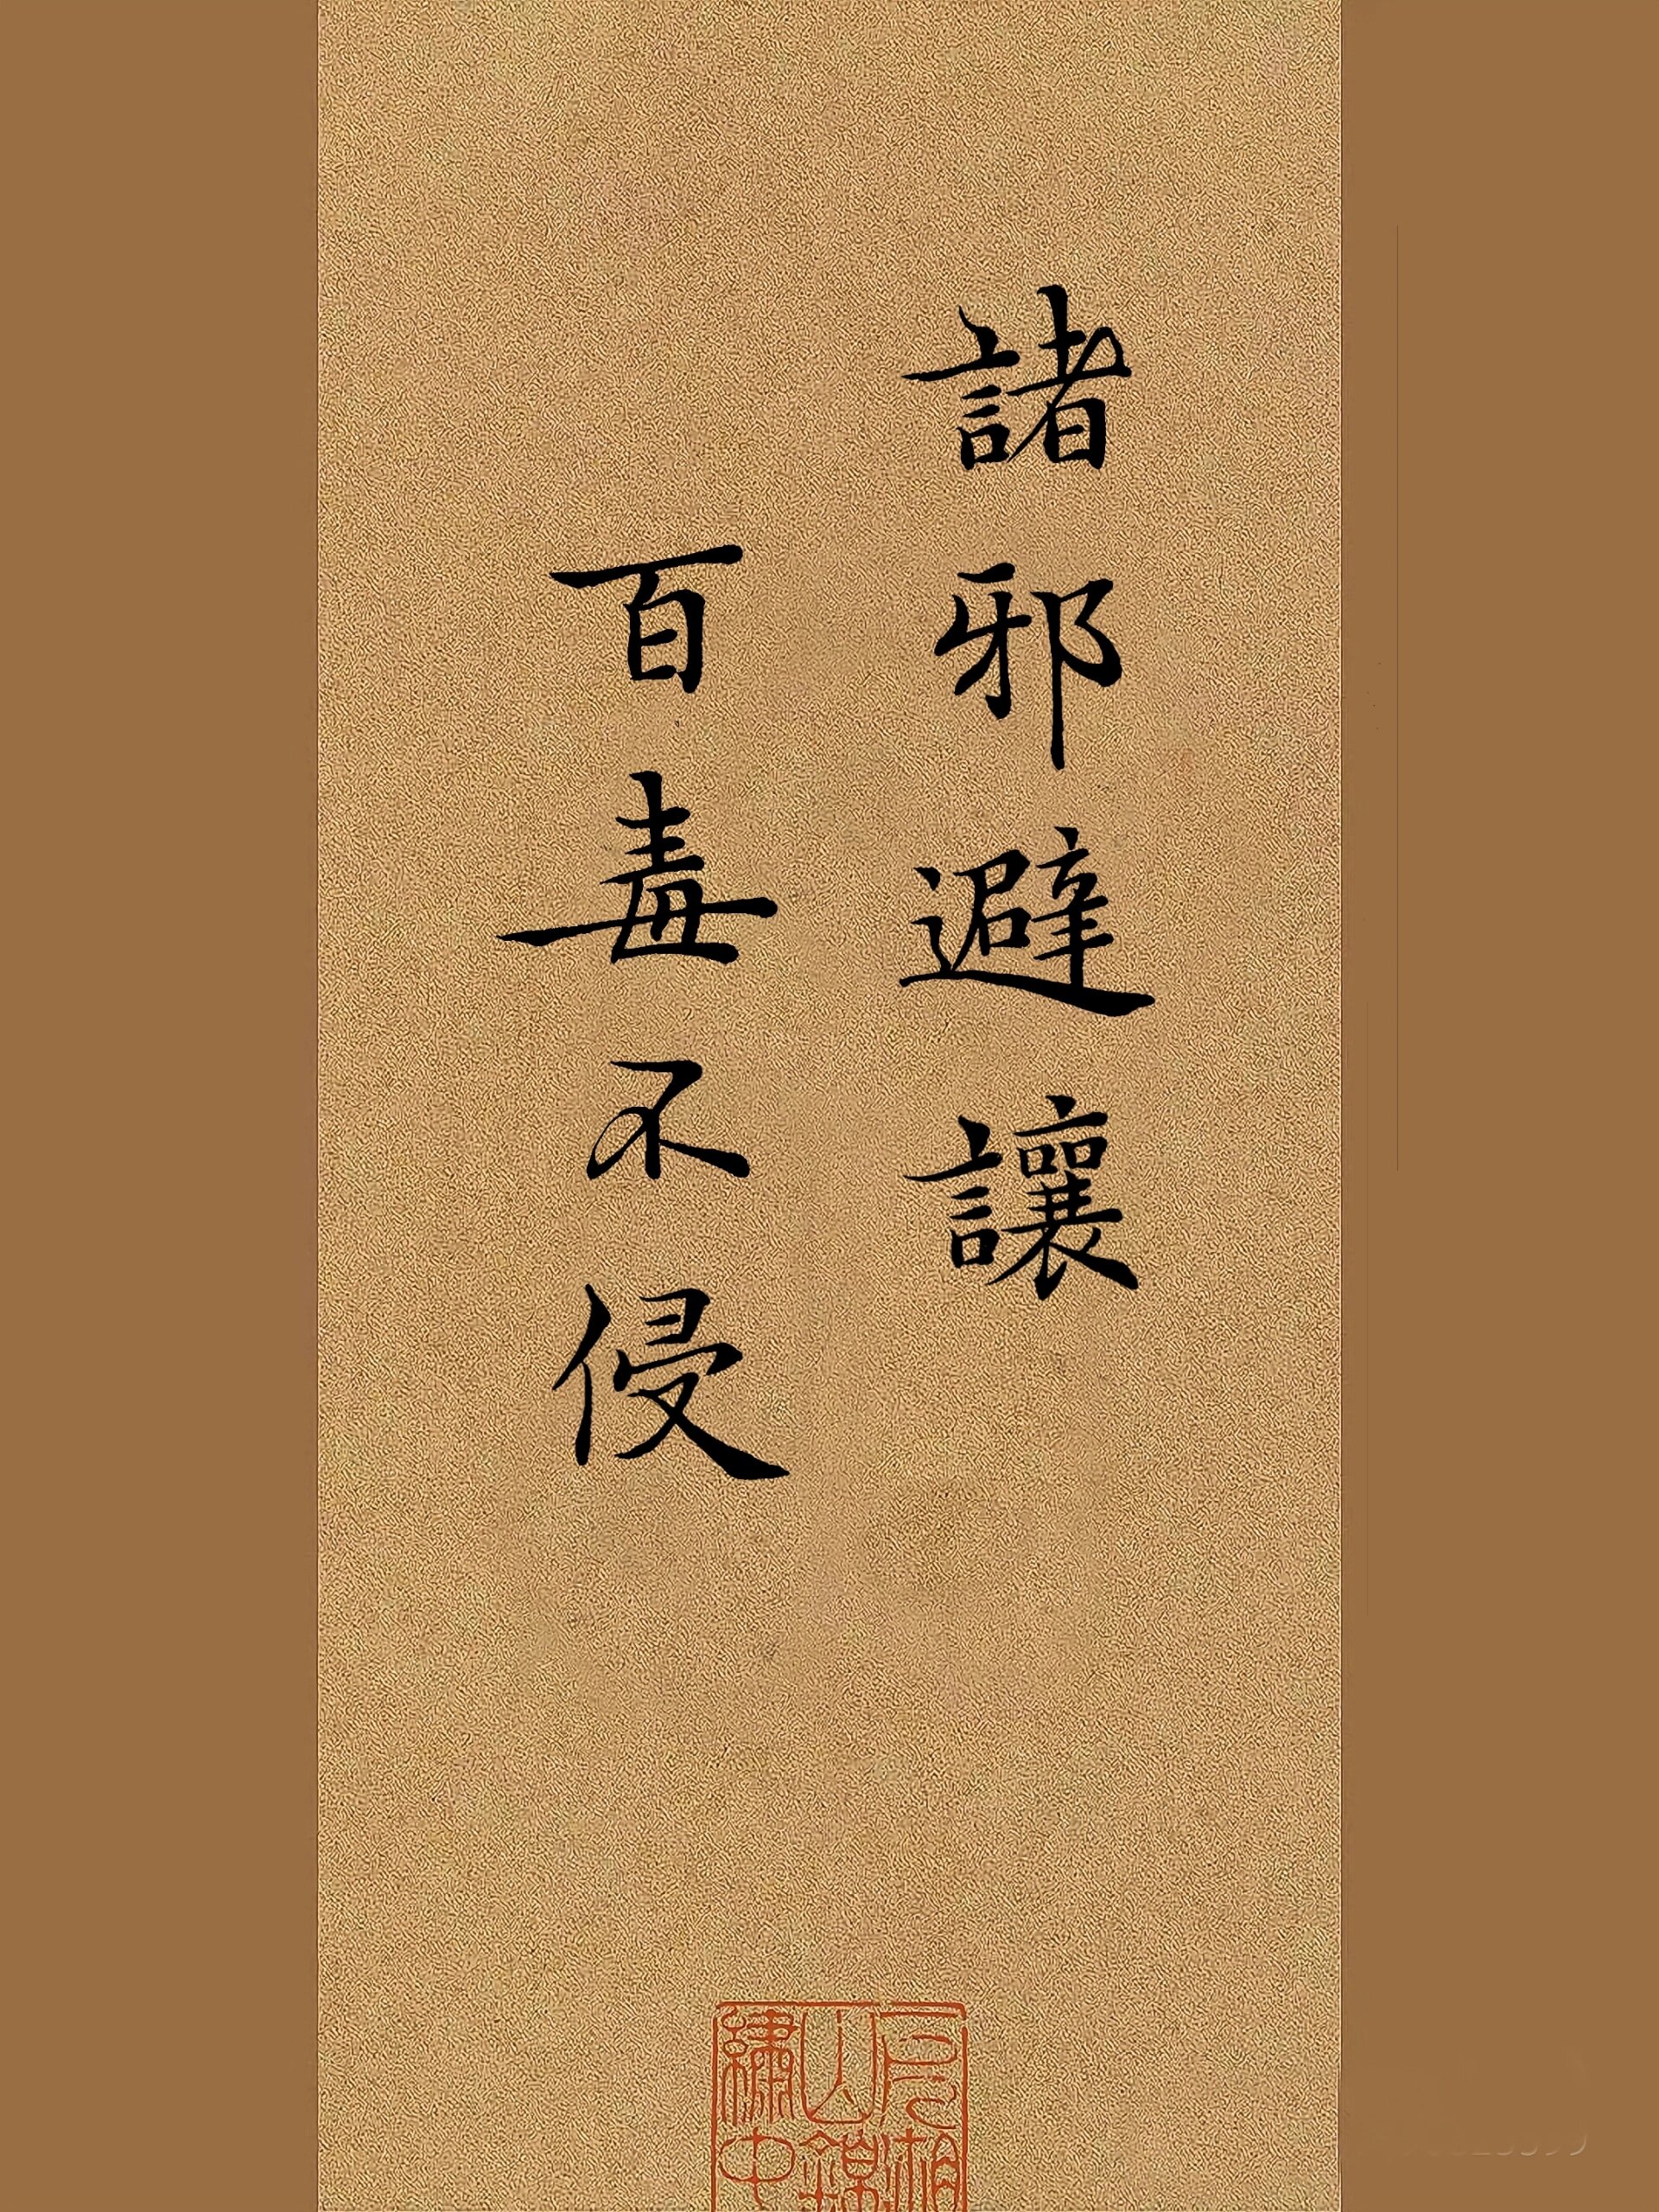 諸邪避讓
百毒不侵